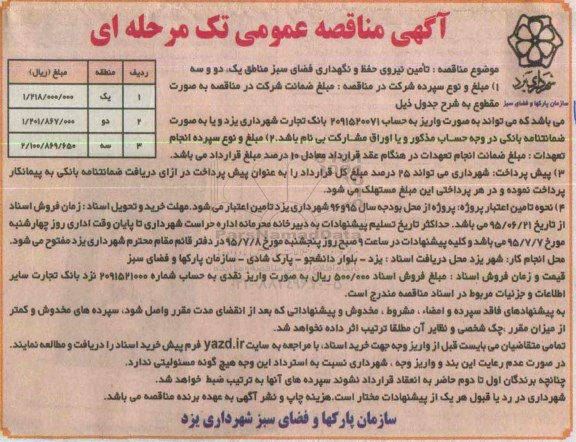 آگهی مناقصه عمومی تک مرحله ای
شهرداری یزد
سازمان پارکها و فضای سبز
موضوع مناقصه : تأمین نیروی حفظ و نگهداری فضای سبز مناطق یک، دو و سه
۱) مبلغ و نوع سپرده شرکت در مناقصه : مبلغ ضمانت شرکت در مناقصه به صورت
مقطوع به شرح جدول ذیل
ردیف منطقه مبلغ (ریال)
۱ یک ۱/۲۱۸/۰۰۰/۰۰۰
۲ دو ۱/۲۰۱/۸۶۷/۰۰۰
۳ سه ۲/۱۰۰/۸۶۹/۶۵۰
می باشد که می تواند به صورت واریز به حساب ۲۰۹۱۵۲۰۰۷۱ بانک تجارت شهرداری یزد و یا به صورت
ضمانتنامه بانکی در وجه حساب مذکور و یا اوراق مشارکت بی نام باشد.۲) مبلغ و نوع سپرده انجام
تعهدات : مبلغ ضمانت انجام تعهدات در هنگام عقد قرارداد معادل ۱۰ درصد مبلغ قرارداد می باشد.
۳) پیش پرداخت: شهرداری می تواند ۲۵ درصد مبلغ کل قرارداد را به عنوان پیش پرداخت در ازای دریافت ضمانتنامه بانکی به پیمانکار
پرداخت نموده و در هر پرداختی این مبلغ مستهلک می شود.
۴) نحوه تامین اعتبار پروژه: پروژه از محل بودجه سال ۹۵و۹۶ شهرداری یزد تامین اعتبار می شود.مهلت خرید و تحویل اسناد : زمان فروش اسناد
از تاریخ ۹۵/۰۶/۲۱ می باشد. حداکثر تاریخ تسلیم پیشنهادات به دبیرخانه محرمانه اداره حراست شهرداری تا پایان وقت اداری روز چهارشنبه
مورخ ۹۵/۷/۷ می باشد و کلیه پیشنهادات در ساعت ۹ صبح روز پنجشنبه مورخ ۹۵/۷/۸ در دفتر قائم مقام محترم شهرداری یزد مفتوح می شود.
محل انجام کار: شهر یزد محل دریافت اسناد : یزد - بلوار دانشجو - پارک شادی - سازمان پارکها و فضای سبز
قیمت و زمان فروش اسناد : مبلغ فروش اسناد ۵۰۰/۰۰۰ ریال به صورت واریز نقدی به حساب شماره ۲۰۹۱۵۲۱۰۰۰ نزد بانک تجارت سایر
اطلاعات و جزئیات مربوط در اسناد مناقصه مندرج است.
به پیشنهادهای فاقد سپرده و امضاء ، مشروط ، مخدوش و پیشنهاداتی که بعد از انقضای مدت مقرر واصل شود، سپرده های مخدوش و کمتر
از میزان مقرر ،چک شخصی و نظایر آن مطلقا ترتیب اثر داده نخواهد شد.
تمامی متقاضیان می بایست قبل از واریز وجه جهت خرید اسناد، با مراجعه به سایت yazd.ir فرم پیش خرید اسناد را دریافت و مطالعه نمایند.
در صورت عدم رعایت این بند و واریز وجه ، شهرداری نسبت به استرداد این وجه هیچ گونه مسئولیتی ندارد.
چنانچه برندگان اول تا دوم حاضر به انعقاد قرارداد نشوند سپرده های آنها به ترتیب ضبط خواهد شد.
شهرداری در رد یا قبول هر یک از پیشنهادات مختار است.هزینه چاپ و نشر آگهی به عهده برنده مناقصه می باشد.
سازمان پارکها و فضای سبز شهرداری یزد